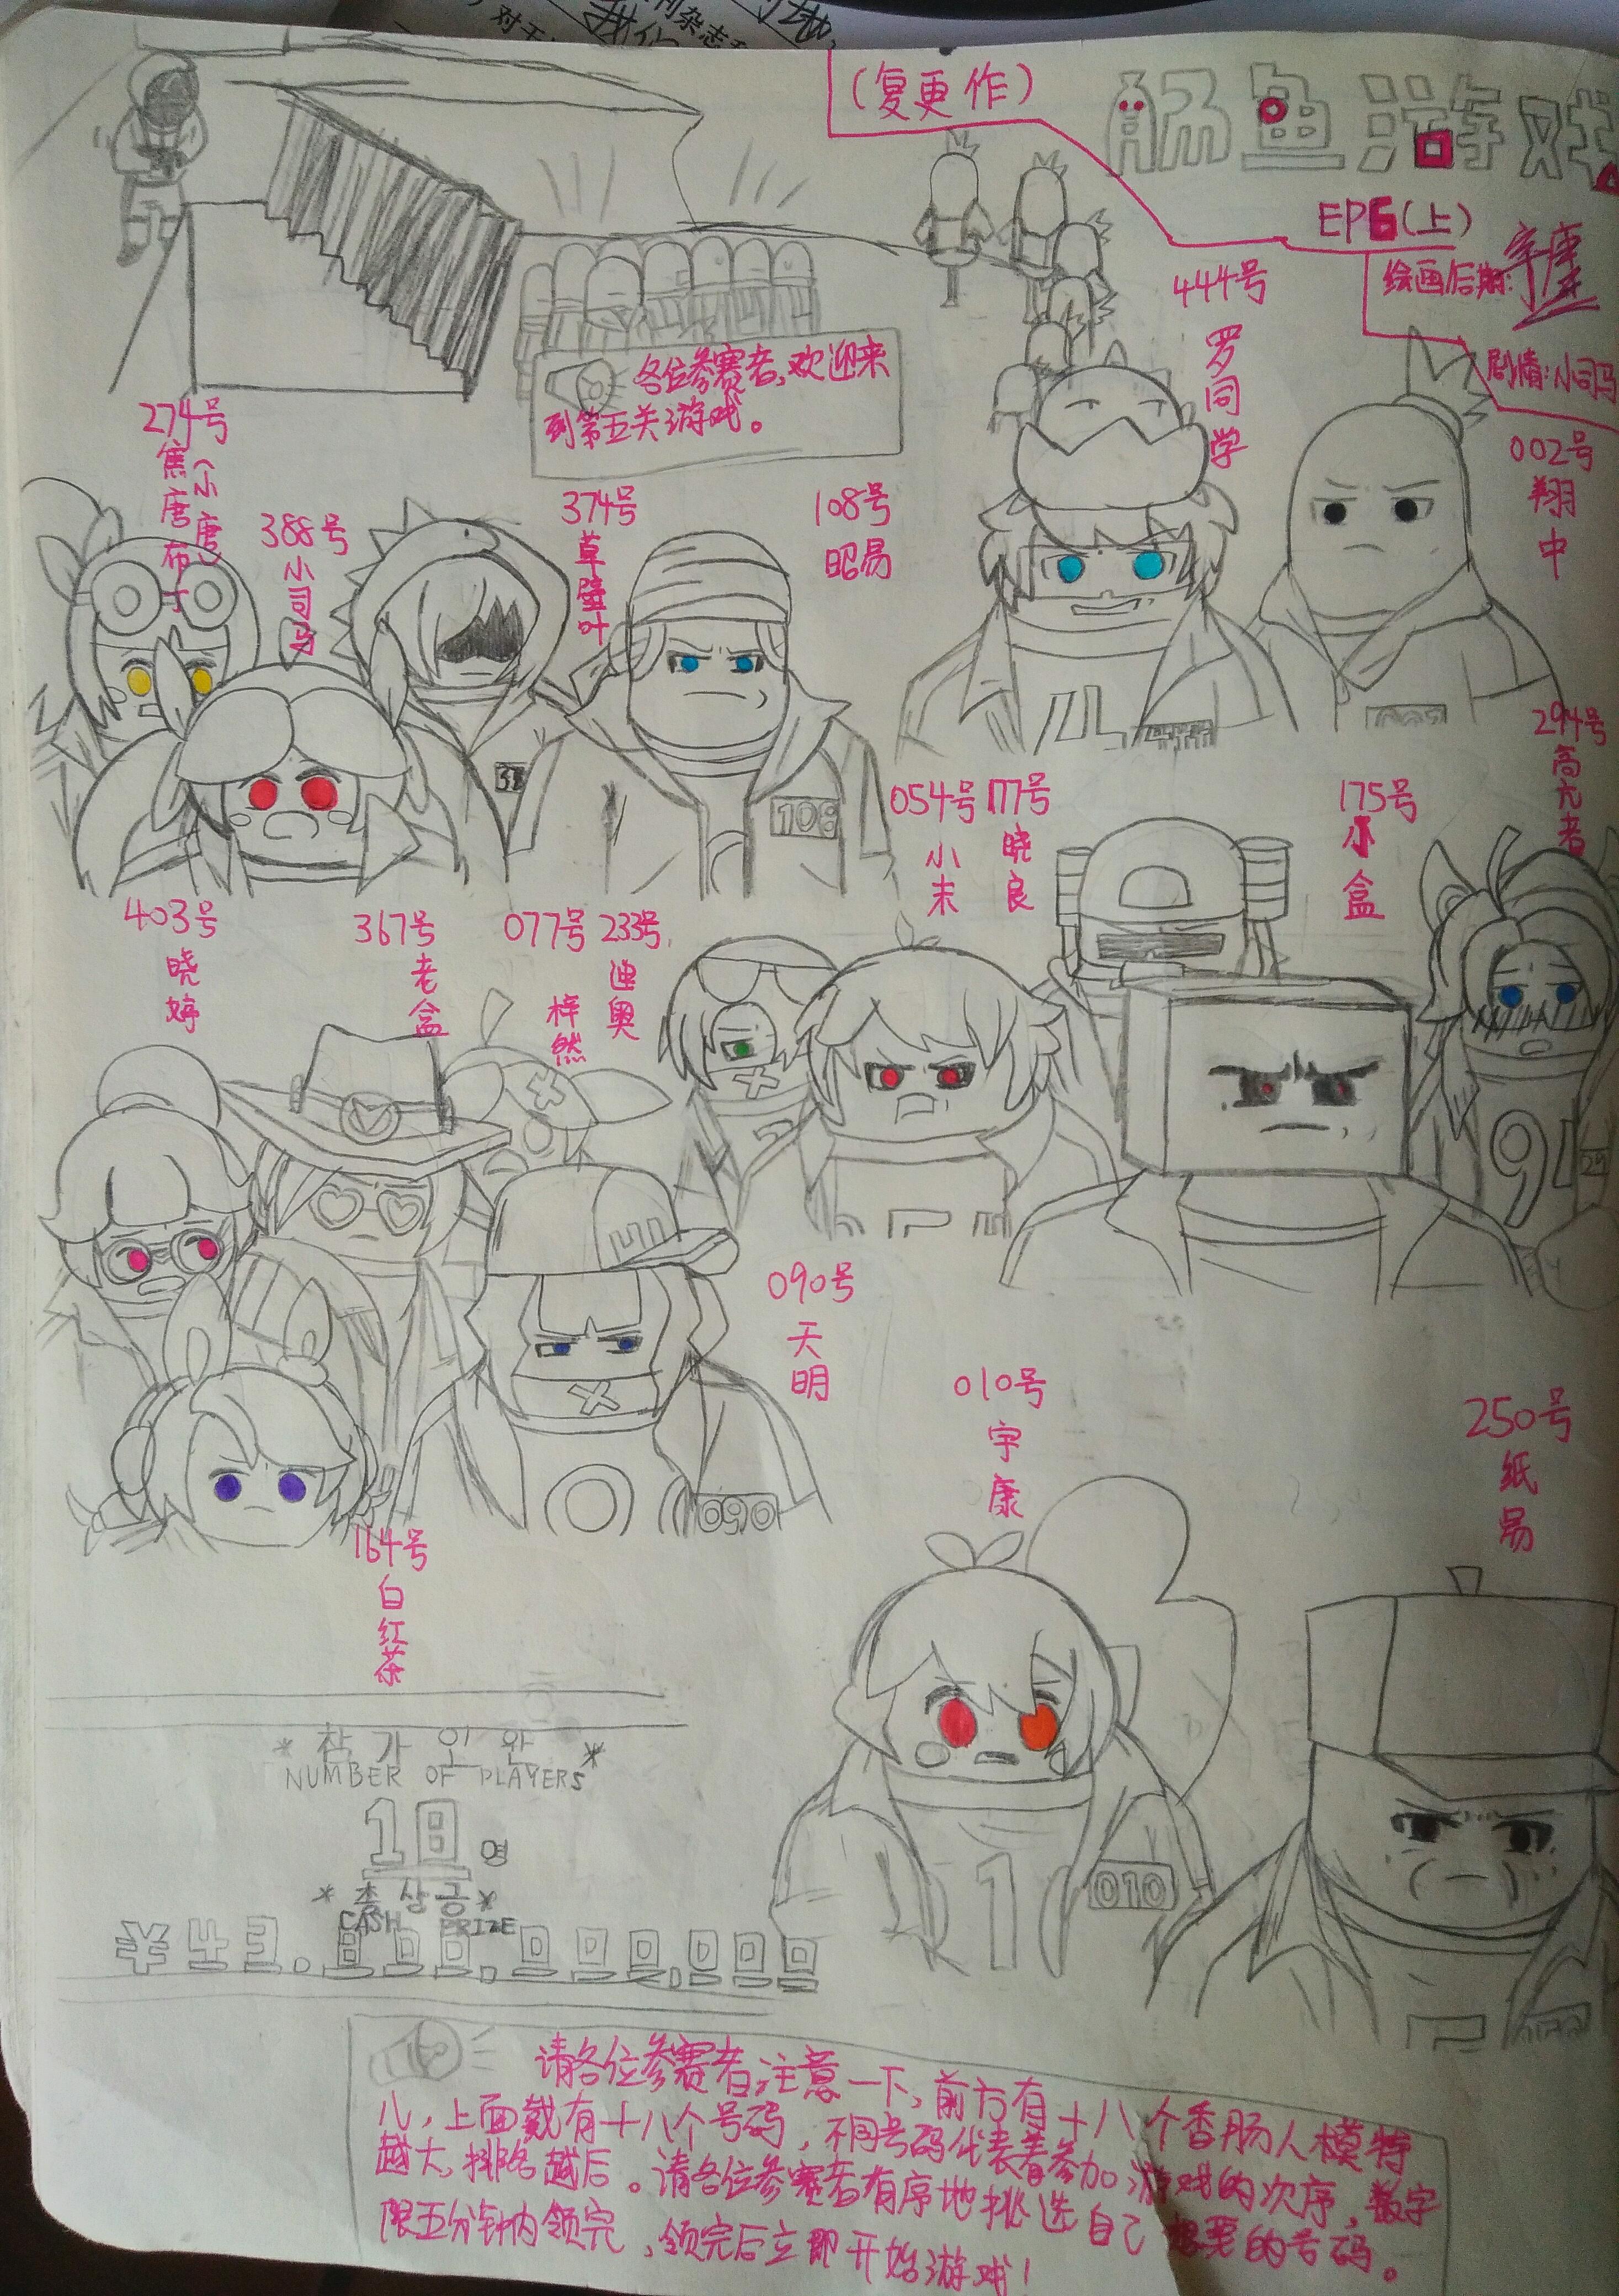 (复更作)
肠鱼游戏
EP6(上)
绘画后期:宇康
剧情:小司马
各位参赛者,欢迎来
到第五关游戏。
444号
罗同学
002号
翔中
274号
焦唐布丁
(小唐)
388号
小司马
374号
草壁叶
108号
昭易
108
294号
高亢者
054号
小末
177号
晓良
175号
小盒
94
403号
晓婷
367号
老盒
077号
梓然
233号
迪奥
090号
天明
090
164号
白红茶
010号
宇康
1
010
250号
纸易
*참가인완*
NUMBER OF PLAYERS
18명
*총상금*
CASH PRIZE
¥43.000,000,000
请各位参赛者注意一下,前方有十八个香肠人模特
儿,上面戴有十八个号码,不同号码代表着参加游戏的次序,数字
越大,排名越后。请各位参赛者有序地挑选自己想要的号码。
限五分钟内领完,领完后立即开始游戏!